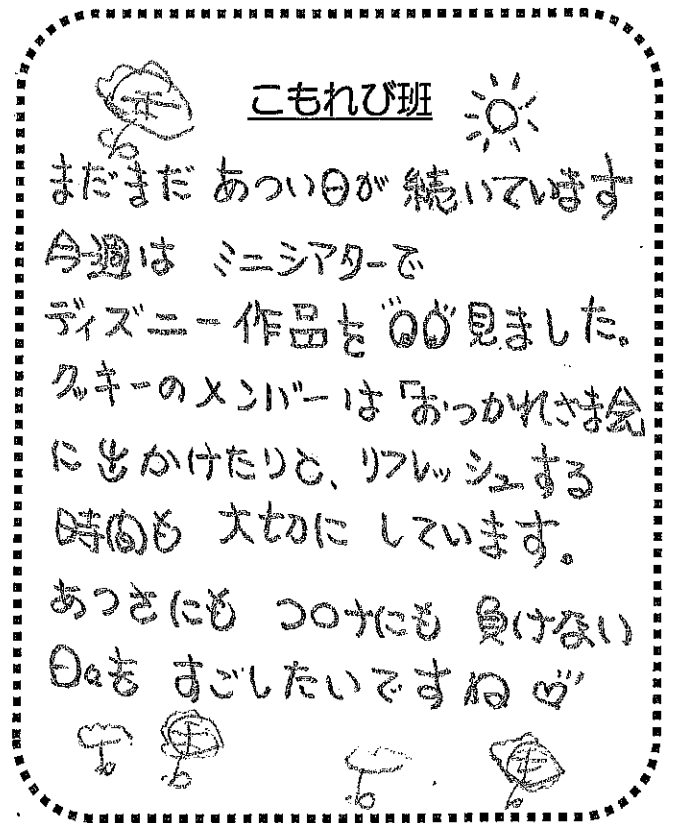 こもれび班
まだまだ あつい日が 続いています
今週は ミニシアターで
ディズニー作品を 見ました。
クッキーのメンバーは「おつかれさま会
に出かけたりと、リフレッシュする
時間も 大切に しています。
あつさにも コロナにも 負けない
日々を すごしたいですね♡